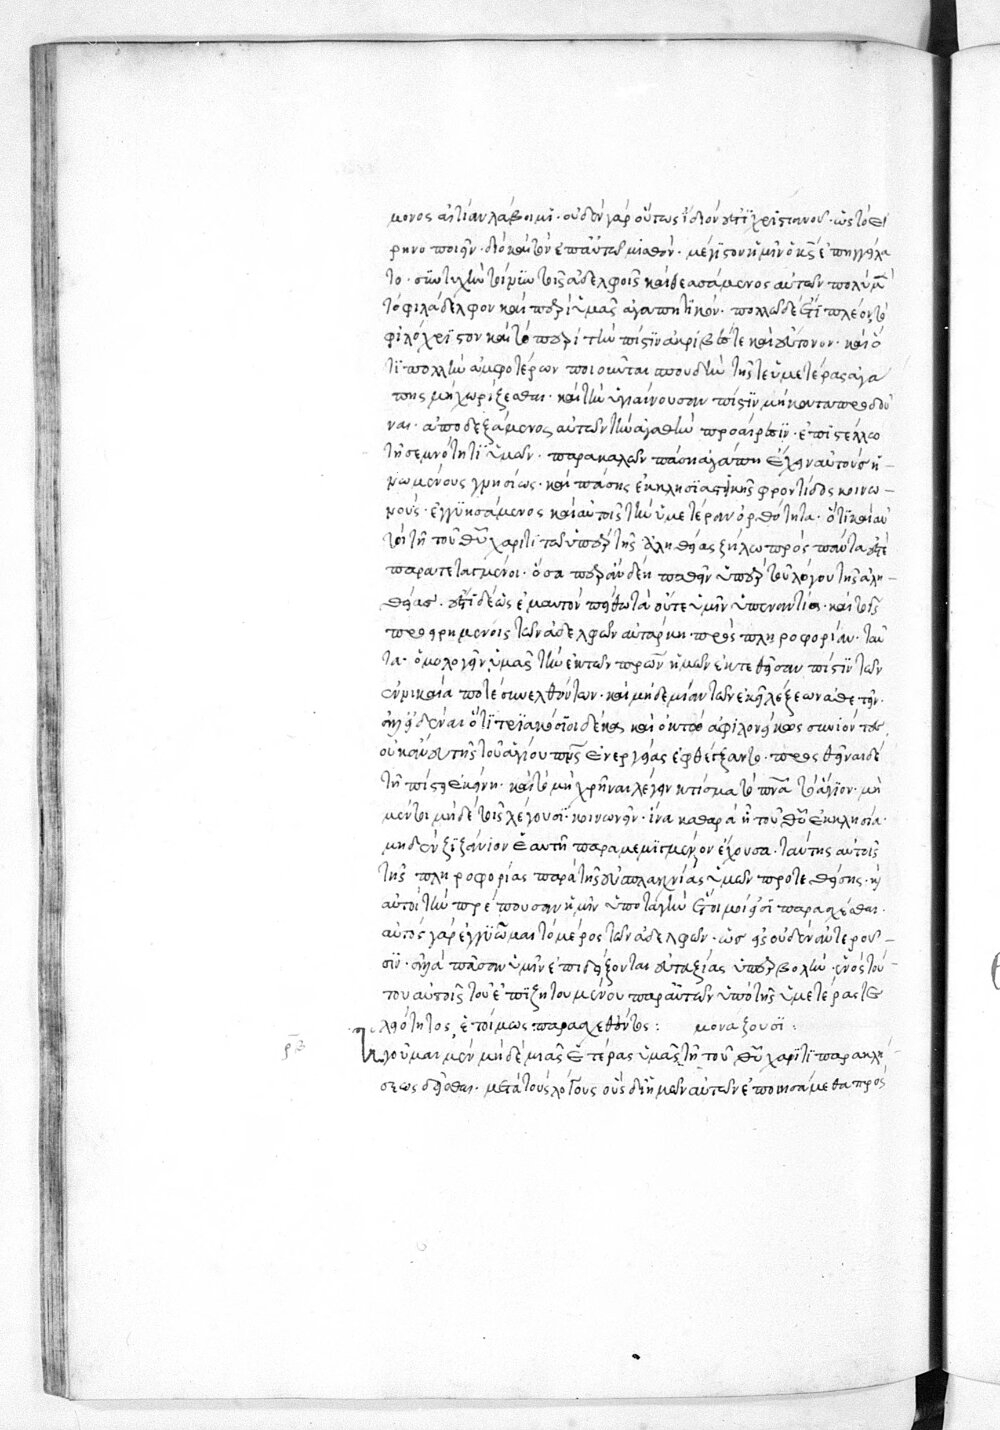 μονος αἰτίαν λάβοιμι· οὐδὲν γὰρ οὕτως ἴδιόν ἐστι χριστιανοῦ· ὡς τὸ εἰ
ρηνοποιεῖν· διὸ καὶ τὸν ἐπ' αὐτῶ μισθὸν· μέγιστον ἡμῖν ὁ κς ἐπηγγείλα
το· συντυχὼν τοίνυν τοῖς ἀδελφοῖς καὶ θεασάμενος αὐτῶν πολὺ μὲν
τὸ φιλάδελφον καὶ περὶ ὑμᾶς ἀγαπητικόν· πολλῶ δὲ ἔτι πλέον τὸ
φιλόχριστον καὶ τὸ περὶ τὴν πίστιν ἀκριβές τε καὶ εὔτονον· καὶ ὅ
τι πολλὴν ἀμφοτέρων ποιοῦνται σπουδὴν τῆς τε ὑμετέρας ἀγά
πης μὴ χωρίζεσθαι· καὶ τὴν ὑγιαίνουσαν πίστιν μὴ καταπροδοῦ
ναι· ἀποδεξάμενος αὐτῶν τὴν ἀγαθὴν προαίρεσιν· ἐπιστέλλω
τῆ σεμνότητι ὑμῶν· παρακαλῶν πάση ἀγάπη ἔχειν αὐτοὺς ἡ–
νωμένους γνησίως· καὶ πάσης ἐκκλησιαστικῆς φροντίδος κοινω–
νούς· ἐγγυησάμενος καὶ αὐτοῖς τὴν ὑμετέραν ὀρθότητα· ὅτι καὶ αὐ
τοὶ τῆ τοῦ θῦ χάριτι τῶ ὑπὲρ τῆς ἀληθείας ζήλω πρὸς πάντα ἐστὲ
παρατεταγμένοι· ὅσα περ ἂν δέη παθεῖν ὑπὲρ τοῦ λόγου τῆς ἀλη–
θείας· ἔστι δὲ ὡς ἐμαυτὸν πείθω τὰ οὔτε ὑμῖν ὑπεναντία· καὶ τοῖς
προειρημένοις τῶν ἀδελφῶν αὐτάρκη πρὸς πληροφορίαν· ταῦ
τα· ὁμολογεῖν ὑμᾶς τὴν ἐκ τῶν πρων ἡμῶν ἐκτεθεῖσαν πίστιν τῶν
ἐν νικαία ποτὲ συνελθόντων· καὶ μηδεμίαν τῶν ἐκεῖ λέξεων ἀθετεῖν·
ἀλλ' εἰδέναι ὅτι τριακόσιοι δέκα καὶ ὀκτὼ ἀφιλονείκως συνιόντες
οὐκ ἄνευ τῆς τοῦ ἁγίου πνς ἐνεργείας ἐφθέγξαντο· προσθεῖναι δὲ
τῆ πίστει ἐκείνη· καὶ τὸ μὴ χρῆναι λέγειν κτίσμα τὸ πνα τὸ ἅγιον· μὴ
μέντοι μηδὲ τοῖς λέγουσι· κοινωνεῖν· ἵνα καθαρὰ ἦ τοῦ θῦ ἐκκλησία·
μηδὲν ζιζάνιον ἑαυτῆ παραμεμιγμένον ἔχουσα· ταύτης αὐτοῖς
τῆς πληροφορίας παρὰ τῆς εὐσπλαγχνίας ὑμῶν προτεθείσης· κ
αὐτοὶ τὴν πρέπουσαν ὑμῖν ὑποταγὴν ἕτοιμοί εἰσι παρασχέσθαι·
αὐτὸς γὰρ ἐγγυῶμαι τὸ μέρος τῶν ἀδελφῶν· ὡς εἰς οὐδὲν ἀντεροῦ–
σιν· ἀλλὰ πᾶσαν ὑμῖν ἐπιδείξονται εὐταξίας ὑπερβολὴν· ἑνὸς τού–
του αὐτοῖς τοῦ ἐπιζητουμένου παρ' αὐτῶν ὑπὸ τῆς ὑμετέρας τε
λειότητος ἑτοίμως παρασχεθέντος: μονάζουσι:
ἡγοῦμαι μὲν μηδεμιᾶς ἑτέρας ὑμᾶς τῆ τοῦ θῦ χάριτι παρακλή
σεως δεῖσθαι· μετὰ τοὺς λόγους οὓς δι' ἡμῶν αὐτῶν ἐποιησάμεθα πρὸς